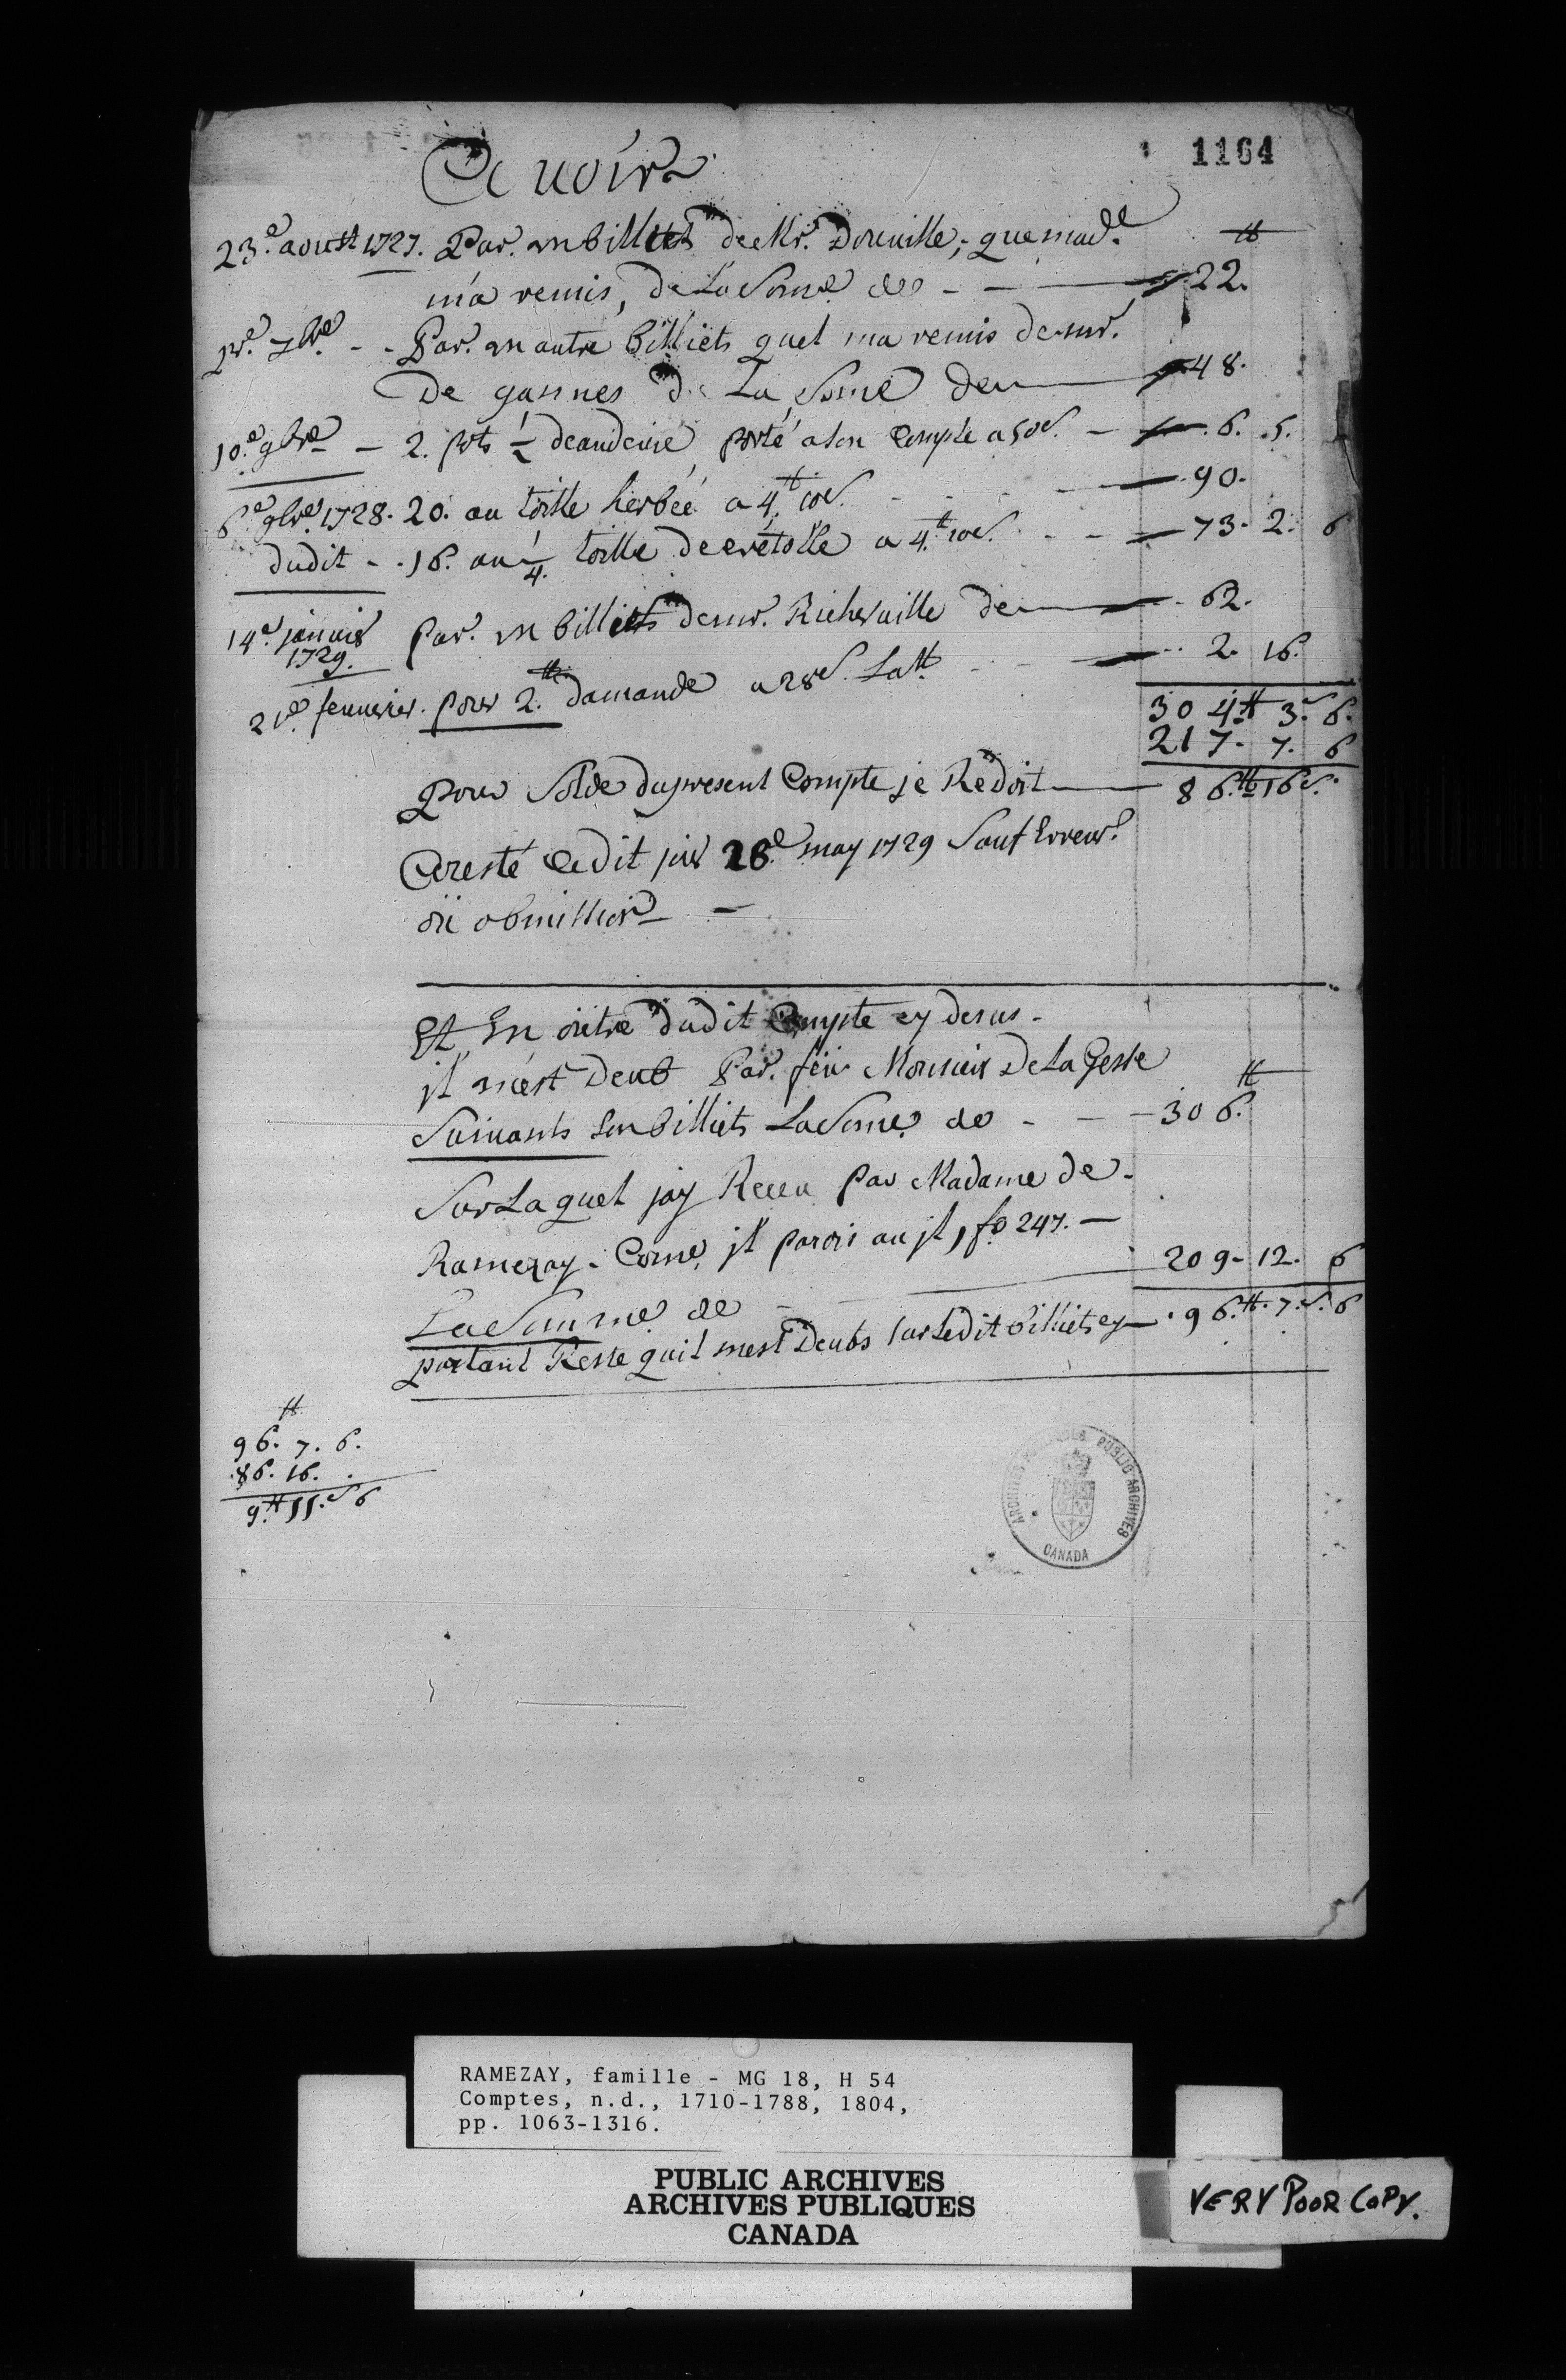 1164
Avoir
23.e aoust 1727. Par. un billiets de Mr. Douville, que mad.e ₶
m'a remis, de La Some de - - 22.
pr. 7bre - - Par. un autre billiets quel ma remis de mr.
De gannes de La Some de 48.
10.e 9bre - 2. pots ½ deaudevie porté a son Compte a 50s. - 6. 5.
6.e 9bre 1728. 20. au toille herbée a 4₶ 10s. - - 90.
dudit - - 16. au ¼ toille de a 4.₶ 10s. - - 73. 2. 6
14.e janvier 1729. Par. un billiets de mr. Richarville de 62.
21.e fevverier. pour 2.₶ damande a 28s. La ₶ 2. 16.
304₶ 3.s 6.
217. 7. 6
pour Solde du present Compte je Redoit 86.₶ 16s.
Aresté Ce dit jour 28.e may 1729 Sauf Erreur
où obmission -
Et En outre dudit Compte cy desus -
jl mest Deub Par. feu Monsieur De La Gesse ₶
Suivants Son billiets La Some de - - - 306.
Sur Laquel jay Receu par Madame de -
Ramezay - Come, jl parois au jl, fo 247. -
La Somme de - 209. 12. 6
partant Reste quil mest Deubs sur Ledit billiets cy - 96.₶ 7.s 6
₶
96. 7. 6.
86. 16.
9.₶ 11.s 6
ARCHIVES PUBLIQUES PUBLIC ARCHIVES
CANADA
RAMEZAY, famille - MG 18, H 54
Comptes, n.d., 1710-1788, 1804,
pp. 1063-1316.
PUBLIC ARCHIVES
ARCHIVES PUBLIQUES
CANADA
VERY POOR COPY.